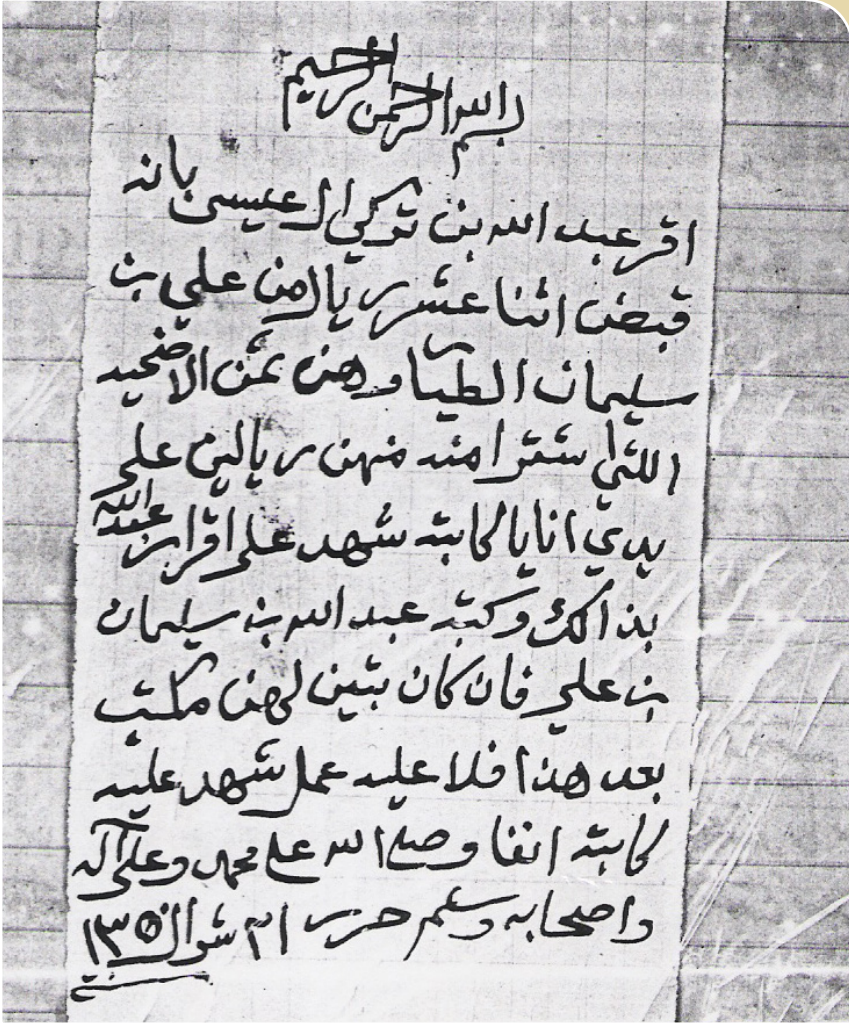 بسم الله الرحمن الرحيم
اقر عبد الله بن تركي ال عيسى بانه
قبض اثنا عشر ريال من علي بن
سليمان الطيار وهن ثمن الاضحيه
اللتي اشترا منه منهن ريالين على
يدي انايا كاتبه شهد على اقرار عبد الله
بذالك وكتبه عبد الله بن سليمان
بن علي فان كان بتبين لهن مكتب
بعد هذا فلا عليه عمل شهد عليه
كاتبه انفا وصلى الله على محمد وعلى آله
واصحابه وسلم حرر ٢١ شوال ١٣٥٠